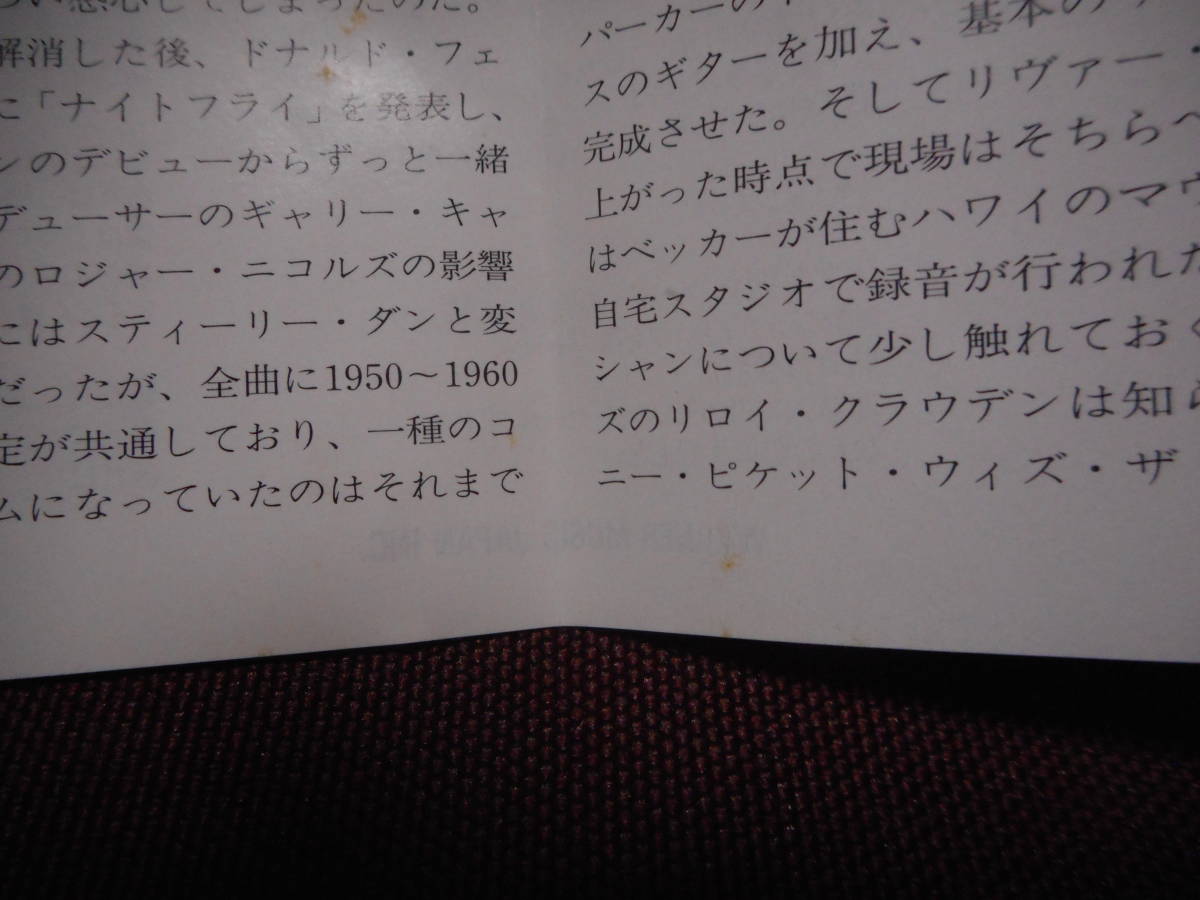 つい感心してしまったのだ。
解消した後、ドナルド・フェ
に「ナイトフライ」を発表し、
ンのデビューからずっと一緒
デューサーのギャリー・キャ
のロジャー・ニコルズの影響
にはスティーリー・ダンと変
だったが、全曲に1950～1960
定が共通しており、一種のコ
ムになっていたのはそれまで
パーカーの
スのギターを加え、基本の
完成させた。そしてリヴァー・
上がった時点で現場はそちらへ
はベッカーが住むハワイのマウ
自宅スタジオで録音が行われた
シャンについて少し触れておく
ズのリロイ・クラウデンは知ら
ニー・ピケット・ウィズ・ザ